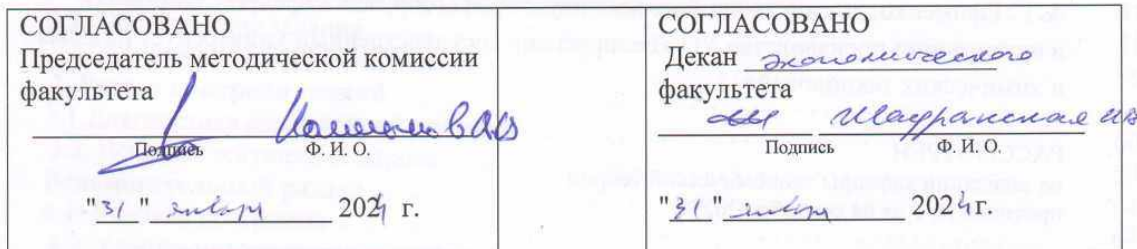 СОГЛАСОВАНО
Председатель методической комиссии
факультета
Подпись Ф. И. О.
"31" января 2024 г.
СОГЛАСОВАНО
Декан экономического
факультета
Шафранская ИВ
Подпись Ф. И. О.
"31" января 2024 г.